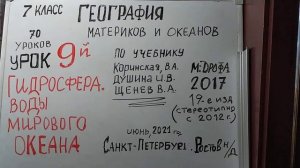 7 КЛАСС ГЕОГРАФИЯ
МАТЕРИКОВ И ОКЕАНОВ
70 УРОКОВ
УРОК 9й
ГИДРОСФЕРА.
ВОДЫ
МИРОВОГО
ОКЕАНА
ПО УЧЕБНИКУ
КОРИНСКАЯ, В.А.
ДУШИНА И.В.
ЩЕНЕВ В.А.
М: ДРОФА
2017
19-е изд
(СТЕРЕОТИПНО
с 2012 г.)
ИЮНЬ, 2021 г.
САНКТ-ПЕТЕРБУРГ. РОСТОВ Н/Д